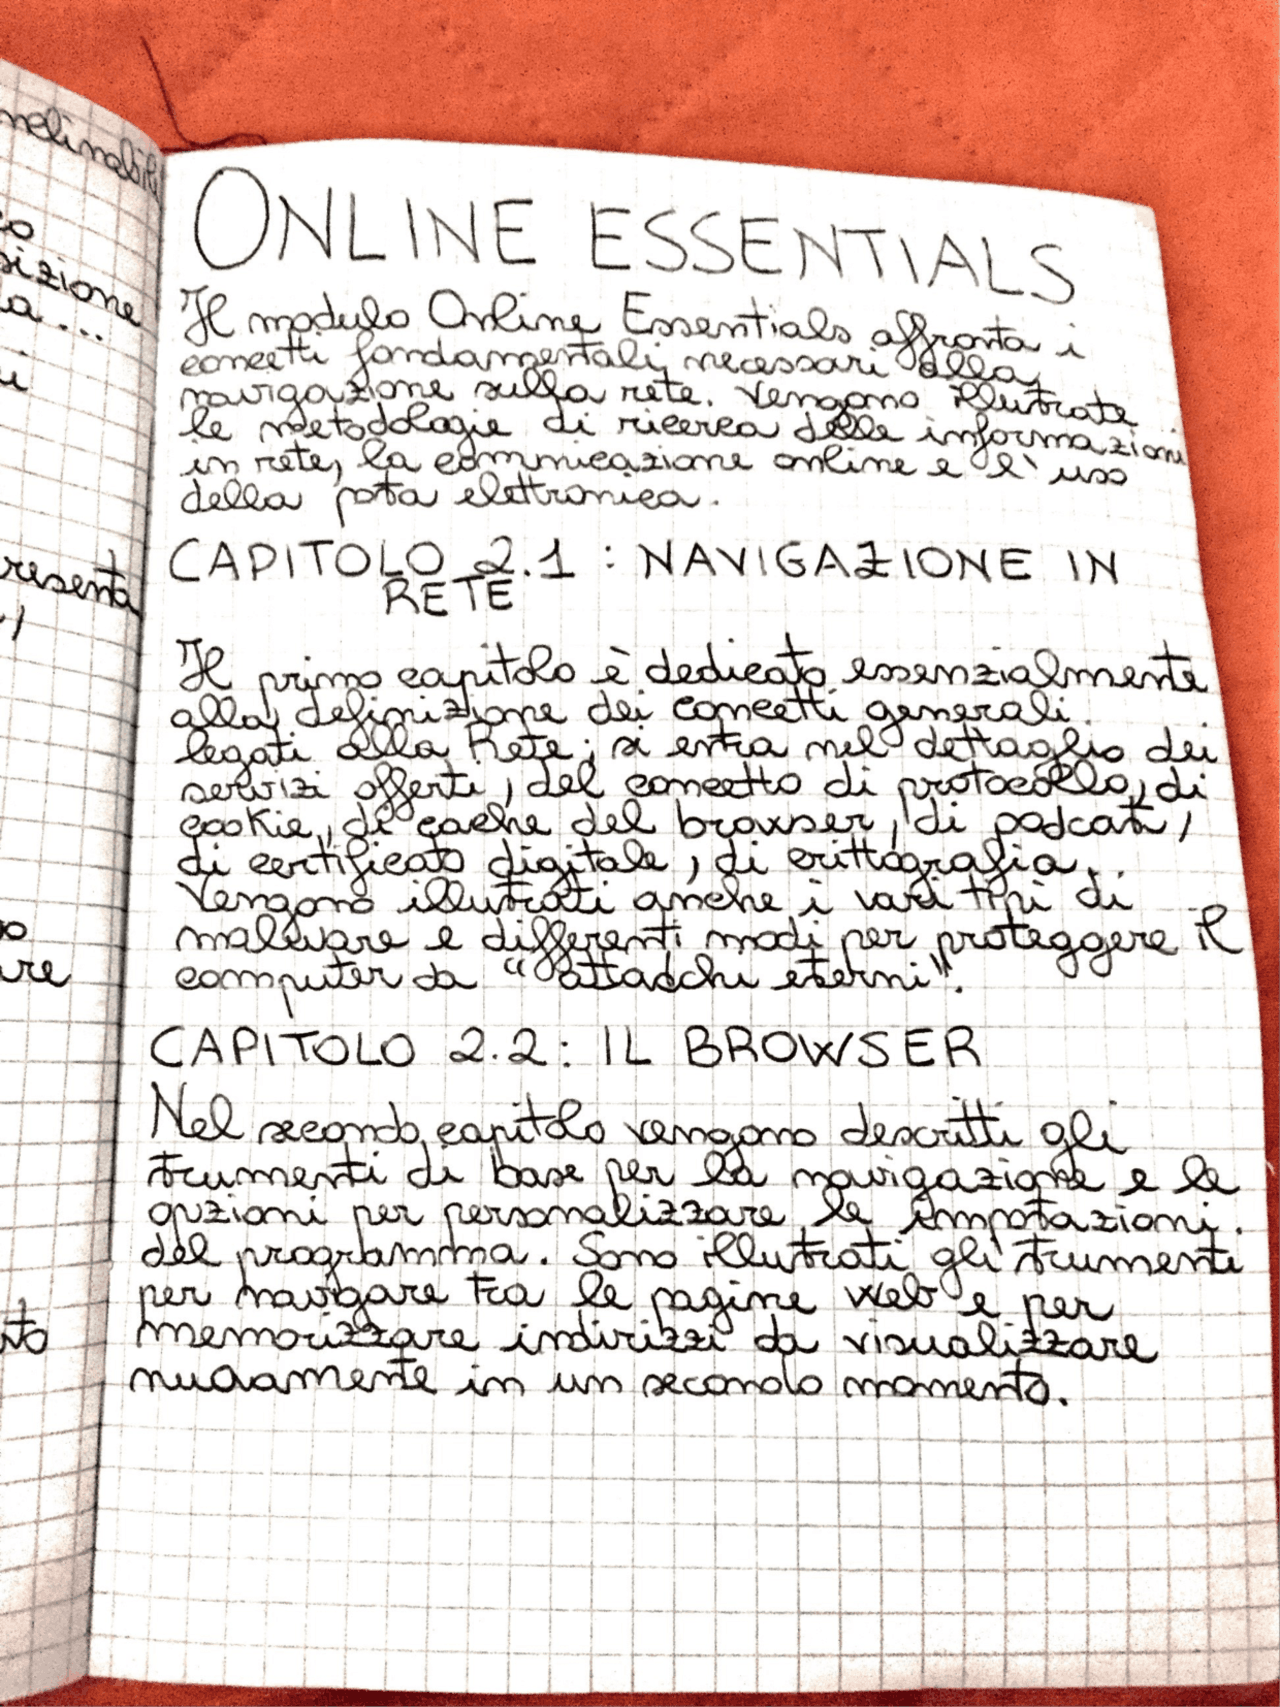 nelinabili
co
sizione
a...
i
resenta
o
re
nto
ONLINE ESSENTIALS
Il modulo Online Essentials affronta i
concetti fondamentali necessari alla
navigazione sulla rete. Vengono illustrate
le metodologie di ricerca delle informazioni
in rete, la comunicazione online e l'uso
della posta elettronica.
CAPITOLO 2.1 : NAVIGAZIONE IN
RETE
Il primo capitolo è dedicato essenzialmente
alla definizione dei concetti generali
legati alla Rete; si entra nel dettaglio dei
servizi offerti, del concetto di protocollo, di
cookie, di cache del browser, di podcast,
di certificato digitale, di crittografia..
Vengono illustrati anche i vari tipi di
malware e differenti modi per proteggere il
computer da "attacchi esterni".
CAPITOLO 2.2: IL BROWSER
Nel secondo capitolo vengono descritti gli
strumenti di base per la navigazione e le
opzioni per personalizzare le impostazioni
del programma. Sono illustrati gli strumenti
per navigare tra le pagine web e per
memorizzare indirizzi da visualizzare
nuovamente in un secondo momento.